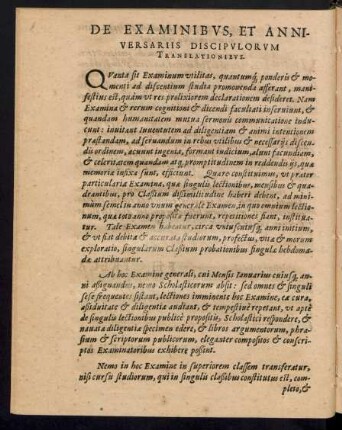 DE EXAMINIBVS, ET ANNI-
VERSARIIS DISCIPVLORVM
TRANSLATIONIBVS.
QVanta sit Examinum vtilitas, quantumq́; ponderis & mo-
menti ad discentium studia promouenda afferant, mani-
festius est, quàm vt res prolixiorem declarationem desideret. Nam
Examina & rerum cognitioni & dicendi facultati inseruiunt, &
quandam humanitatem mutua sermonis communicatione indu-
cunt: inuitant Iuuentutem ad diligentiam & animi intentionem
præstandam, ad seruandum in rebus vtilibus & necessarijs discen-
di ordinem, acuunt ingenia, formant iudicium, alunt facundiam,
& celeritatem quandam atq́; promptitudinem in reddendis ijs, quæ
memoria infixa sunt, efficiunt. Quare constituimus, vt præter
particularia Examina, quæ singulis lectionibus, mensibus & qua-
drantibus, pro Classium dissimilitudine haberi debent, ad mini-
mum semel in anno vnum generale Examen, in quo omnium lectio-
num, quæ toto anno propositæ fuerunt, repetitiones fiant, institua-
tur. Tale Examen habeatur, circa vniuscuiusq́; anni initium,
& vt fiat debita & accurata studiorum, profectus, vitæ & morum
exploratio, singularum Classium probationibus singulæ hebdoma-
dæ attribuantur.
Ab hoc Examine generali, cui Mensis Ianuarius cuiusq́; an-
ni assignandus, nemo Scholasticorum absit: sed omnes & singuli
sese frequentes sistant, lectiones imminente hoc Examine, ea cura,
assiduitate & diligentia audiant, & tempestiuè repetant, vt aptè
de singulis lectionibus publicè propositis, Scholastici respondere, &
nauatæ diligentiæ specimen edere, & libros argumentorum, phra-
sium & scriptorum publicorum, eleganter compositos & conscri-
ptos Examinatoribus exhibere possint.
Nemo in hoc Examine in superiorem classem transferatur,
nisi cursu studiorum, qui in singulis classibus constitutus est, com-
pleto, &